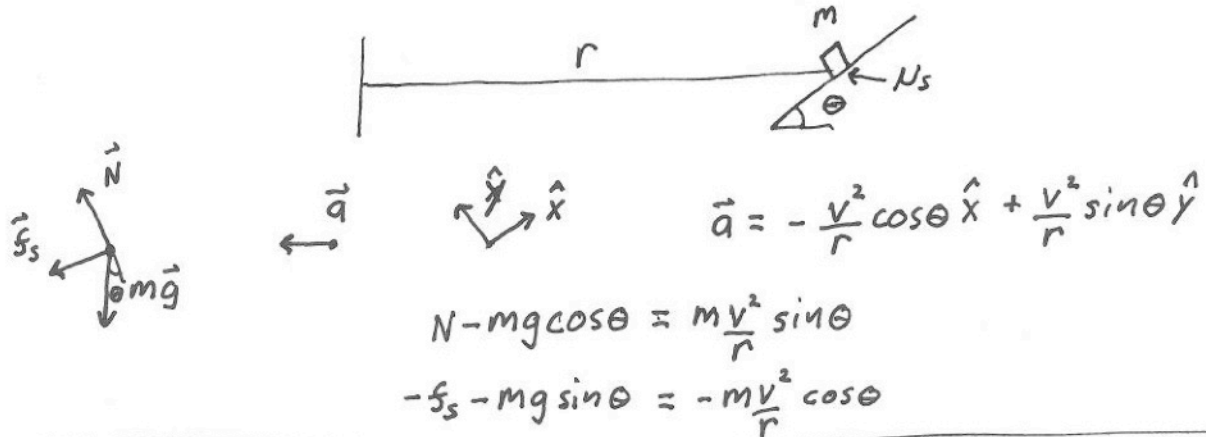 m
r
μs
θ
N⃗
f⃗s
θ mg⃗
a⃗
ŷ x̂
a⃗ = - v²/r cosθ x̂ + v²/r sinθ ŷ
N - mg cosθ = m v²/r sinθ
-fs - mg sinθ = -m v²/r cosθ